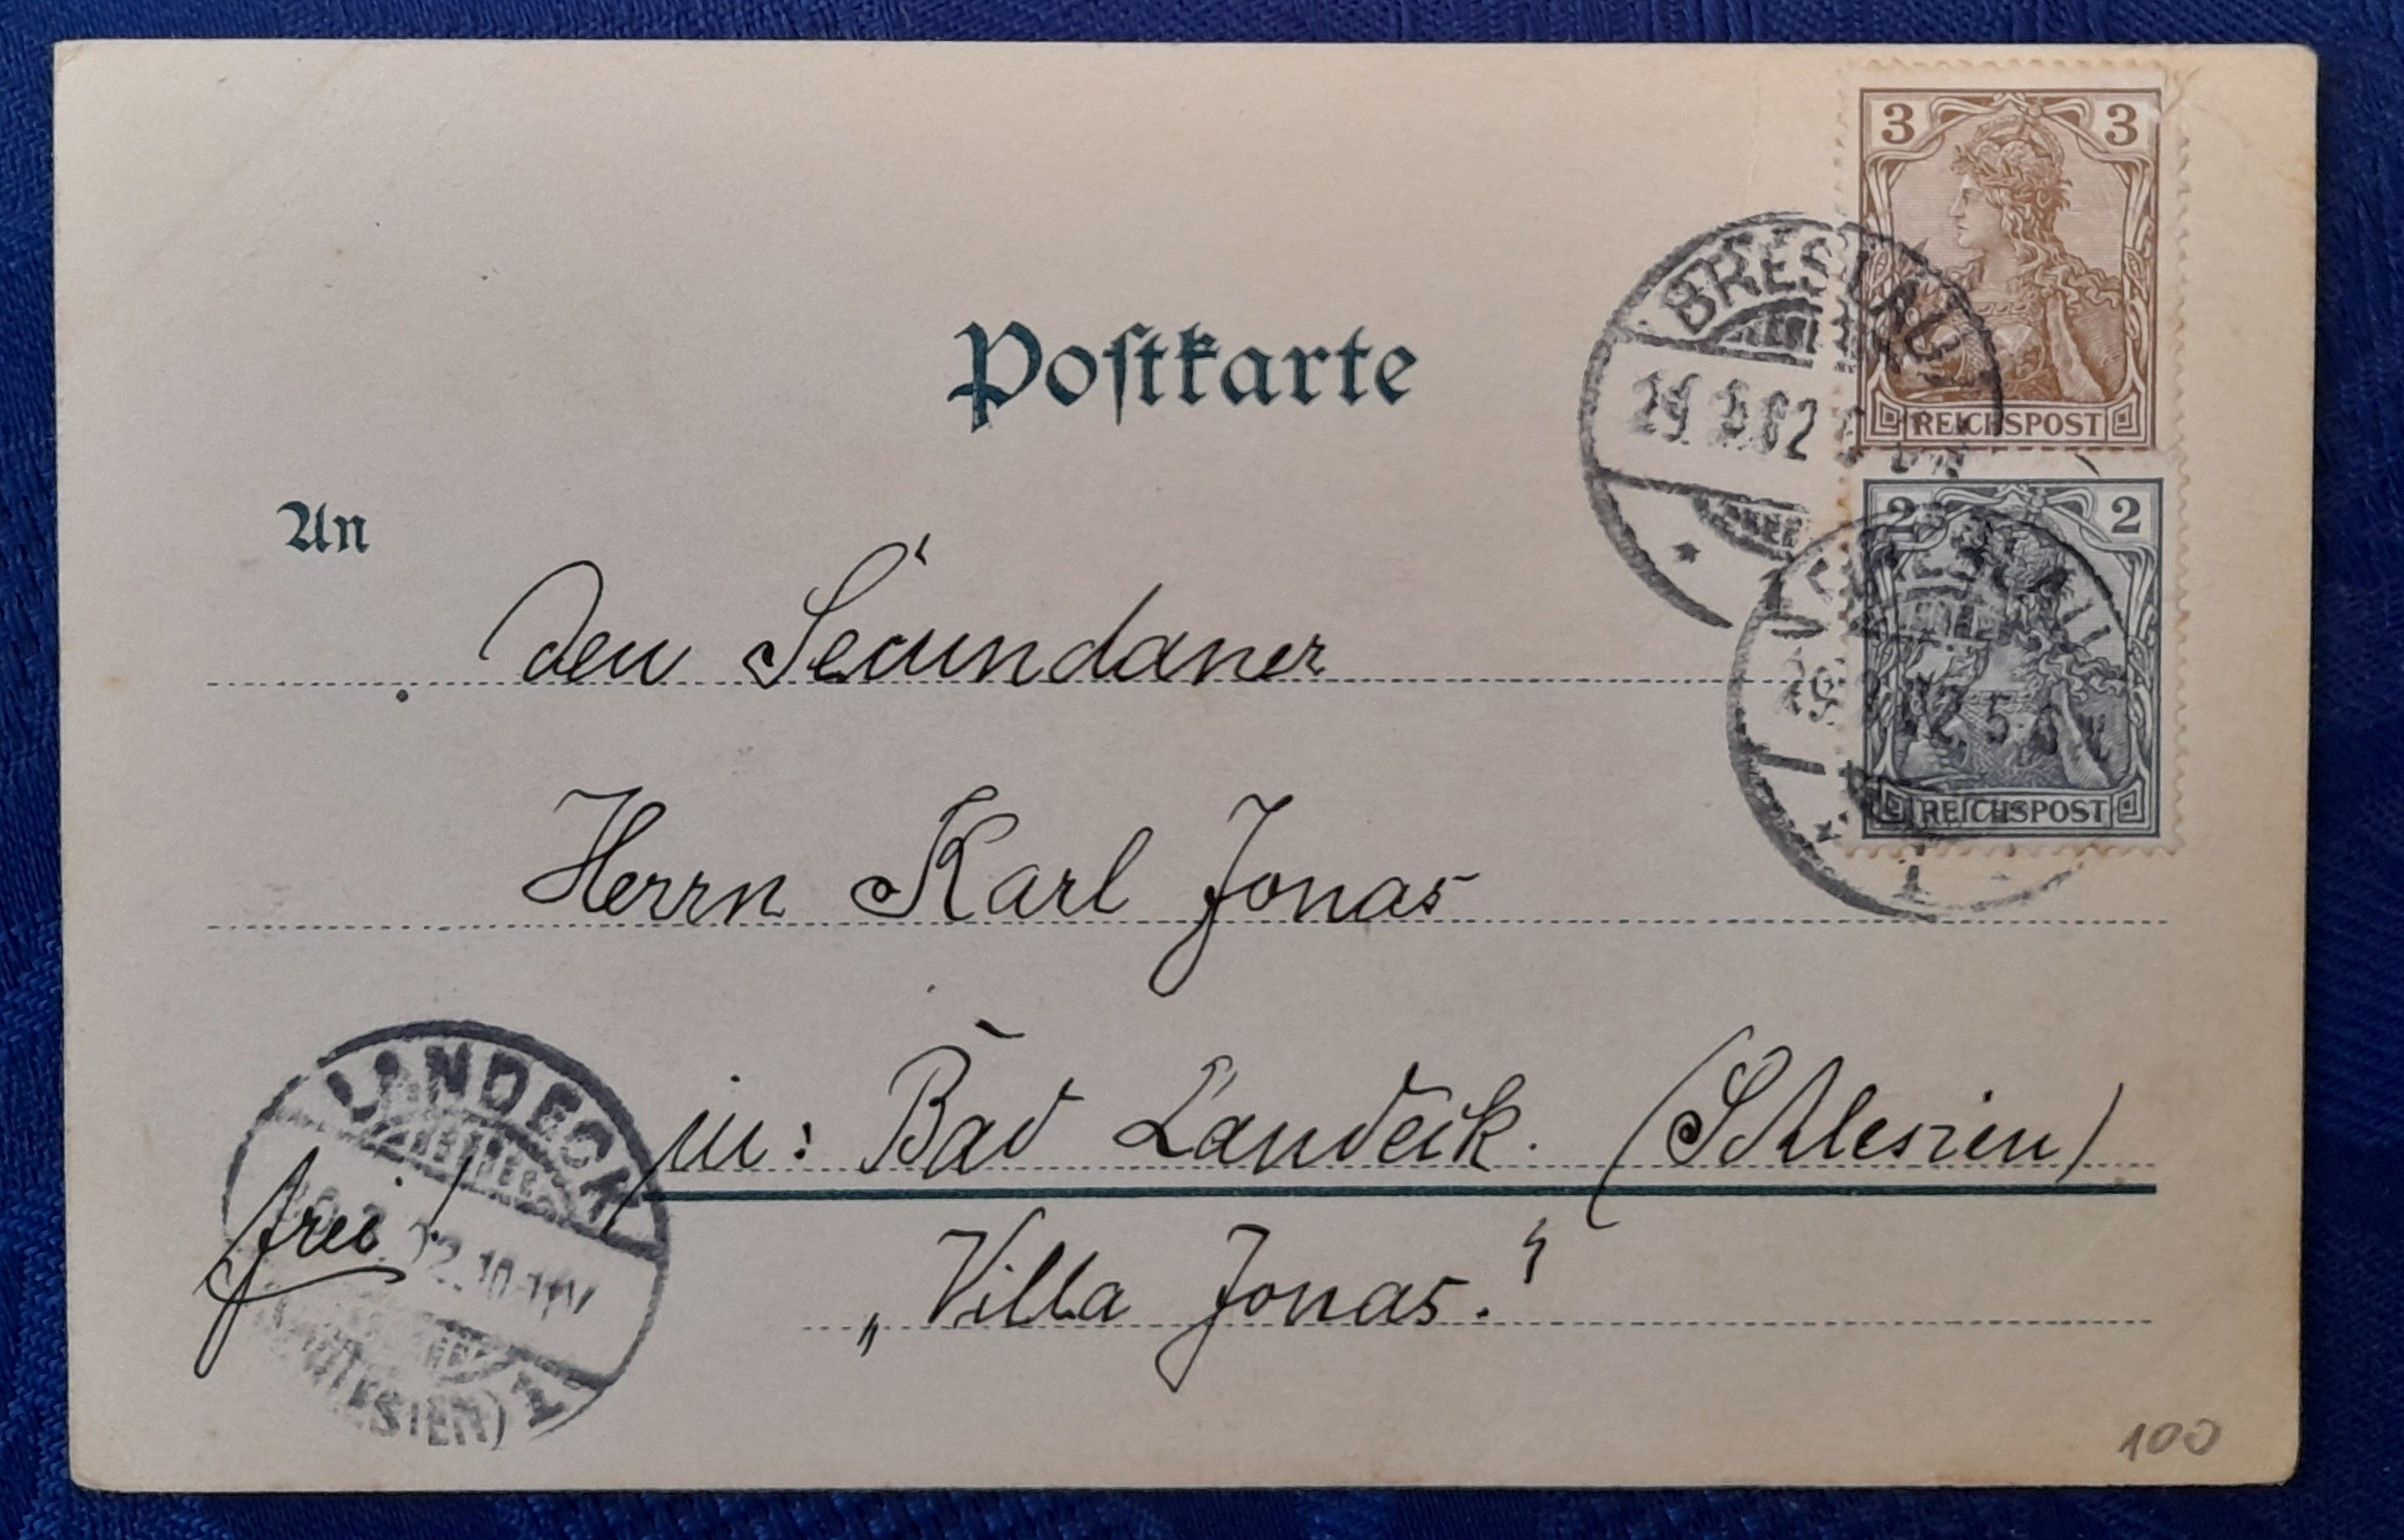 3 3
REICHSPOST
BRESLAU
29.3.02
Postkarte
2 2
REICHSPOST
1
An
den Secundaner
Herrn Karl Jonas
in: Bad Landeck. (Schlesien)
„Villa Jonas."
frei!
LANDECK
02. 10-11V
(SCHLESIEN) 1
100